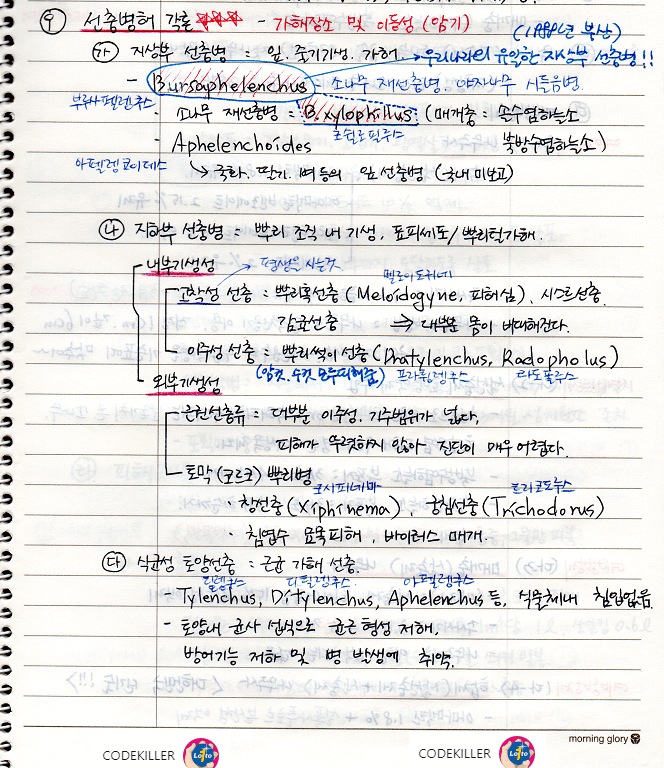 우 선충병해 각론 ☆☆☆ - 가해장소 및 이동성 (암기) (1988년 부산)
가 지상부 선충병 = 잎. 줄기기생. 가해. → 우리나라의 유일한 지상부 선충병!!
- Bursaphelenchus = 소나무 재선충병, 야자나무 시들음병.
부르사펠렌쿠스 · 소나무 재선충병 = B. xylophilus (매개충 = 솔수염하늘소
크실로필루스
- Aphelenchoides 북방수염하늘소)
아펠렌코이데스 → 국화. 딸기. 벼 등의 잎선충병 (국내 미보고)
나 지하부 선충병 = 뿌리 조직 내 기생, 표피세포/뿌리털가해.
내부기생성 평생을 사는것. 멜로이도키네
고착성 선충 = 뿌리혹선충 (Meloidogyne, 피해심), 시스트선충.
감귤선충 ⇒ 대부분 몸이 비대해진다.
이주성 선충 = 뿌리썩이선충 (Pratylenchus, Radopholus)
외부기생성 (암컷. 수컷 모두피해줌) 프라틸렌쿠스 라도폴루스
균현선충류 = 대부분 이주성. 기주범위가 넓다,
피해가 뚜렷하지 않아 진단이 매우 어렵다.
토막(코르크) 뿌리병
크시피네마 트리코도루스
· 창선충 (Xiphinema), 궁침선충 (Trichodorus)
· 침엽수 묘목피해, 바이러스 매개.
다 식균성 토양선충 = 균근 가해 선충.
틸렌쿠스 디틸렌쿠스. 아펠렌쿠스
- Tylenchus, Ditylenchus, Aphelenchus 등, 식물체내 침입없음.
- 토양내 균사 섭식으로 균근 형성 저해,
방어기능 저하 및 병 발생에 취약.
morning glory
CODEKILLER Lotto CODEKILLER Lotto